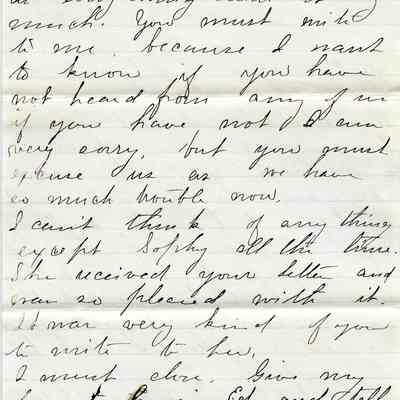 much. You must write
to me, because I want
to know if you have
not heard from any of us
if you have not I am
very sorry, but you must
excuse us as we have
so much trouble now.
I can't think of any thing
except Sophy all the time.
She received your letter and
was so pleased with it.
It was very kind of you
to write to her.
I must close. Give my
to Ed and tell